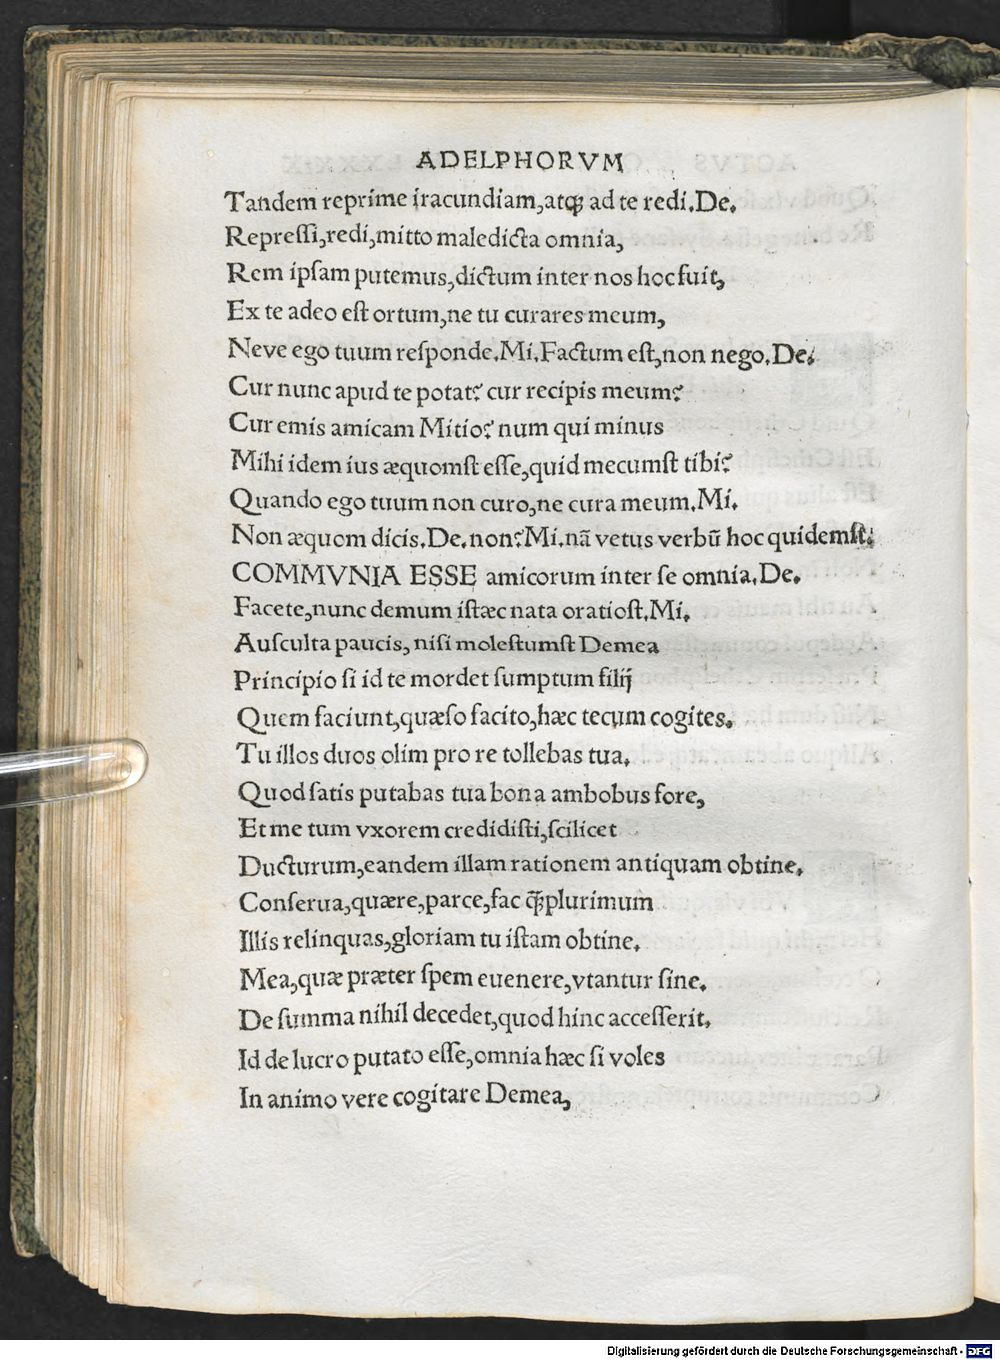 ADELPHORVM
Tandem reprime iracundiam,atqꝫ ad te redi.De.
Repreſſi,redi,mitto maledicta omnia,
Rem ipſam putemus,dictum inter nos hoc fuit,
Ex te adeo eſt ortum,ne tu curares meum,
Neve ego tuum reſponde.Mi.Factum eſt,non nego.De.
Cur nunc apud te potat? cur recipis meum?
Cur emis amicam Mitio? num qui minus
Mihi idem ius æquomſt eſſe,quid mecumſt tibi?
Quando ego tuum non curo,ne cura meum.Mi.
Non æquom dicis.De.non?Mi.nā vetus verbū hoc quidemſt.
COMMVNIA ESSE amicorum inter ſe omnia.De.
Facete,nunc demum iſtæc nata oratioſt.Mi.
Auſculta paucis, niſi moleſtumſt Demea
Principio ſi id te mordet ſumptum filij
Quem faciunt,quæſo facito,hæc tecum cogites.
Tu illos duos olim pro re tollebas tua.
Quod ſatis putabas tua bona ambobus fore,
Et me tum vxorem credidiſti,ſcilicet
Ducturum,eandem illam rationem antiquam obtine.
Conſerua,quære,parce,fac q̄ꝫplurimum
Illis relinquas,gloriam tu iſtam obtine.
Mea,quæ præter ſpem euenere,vtantur ſine.
De ſumma nihil decedet,quod hinc acceſſerit.
Id de lucro putato eſſe,omnia hæc ſi voles
In animo vere cogitare Demea,
Digitalisierung gefördert durch die Deutsche Forschungsgemeinschaft - DFG